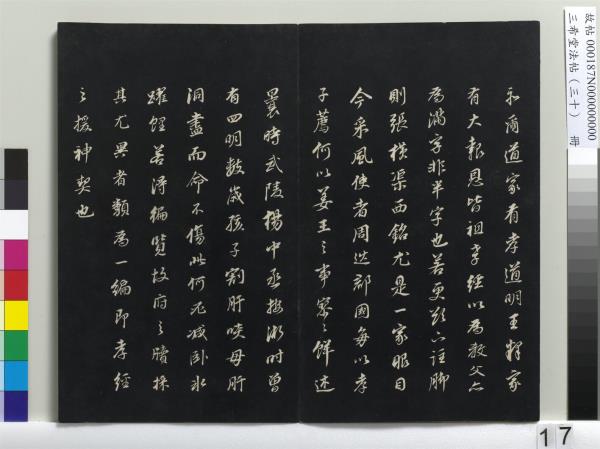 亦爾道家有孝道明王釋家
有大報恩皆祖孝經以為教父六
為滿字非半字也若更欲六註腳
則張橫渠西銘尤是一家眼目
今采風使者周巡郡國每以孝
子薦何以姜王之事寥〻鮮述
曩時武陵楊中丞按浙時曾
有四明數歲孩子割肝啖母肝
洞盡而命不傷此何无减臥冰
躍鯉若得徧覽故府之牘採
其尤異者類為一編即孝經
之援神契也
故帖 000187N000000000
三希堂法帖（三十） 冊
17